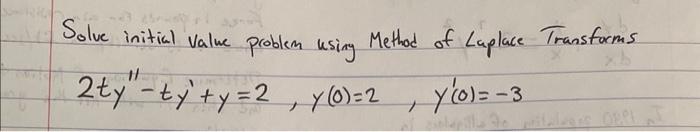 Solve initial value problem using Method of Laplace Transforms
2ty'' - ty' + y = 2 , y(0) = 2 , y'(0) = -3